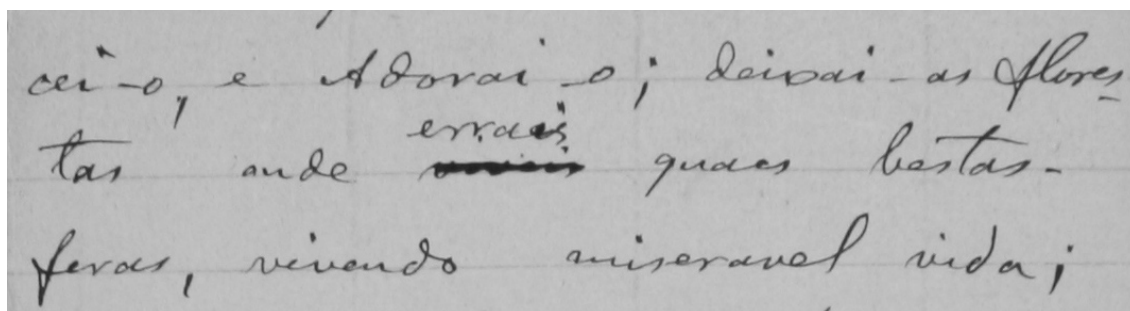 cei-o, e Adorai-o; deixai-as flores-
tas onde errais quaes bestas-
feras, vivendo miseravel vida;